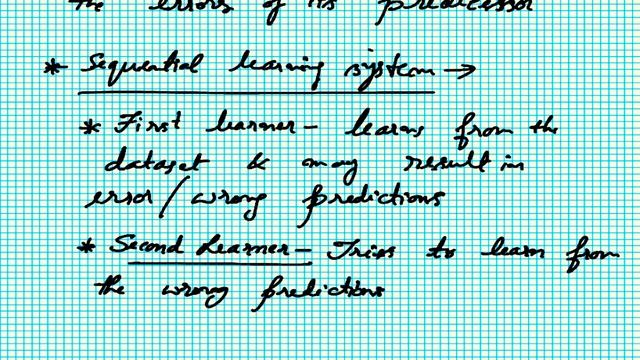 the errors of its predecessor
* Sequential learning system →
* First learner - learns from the
dataset & may result in
error / wrong predictions
* Second Learner - Tries to learn from
the wrong predictions